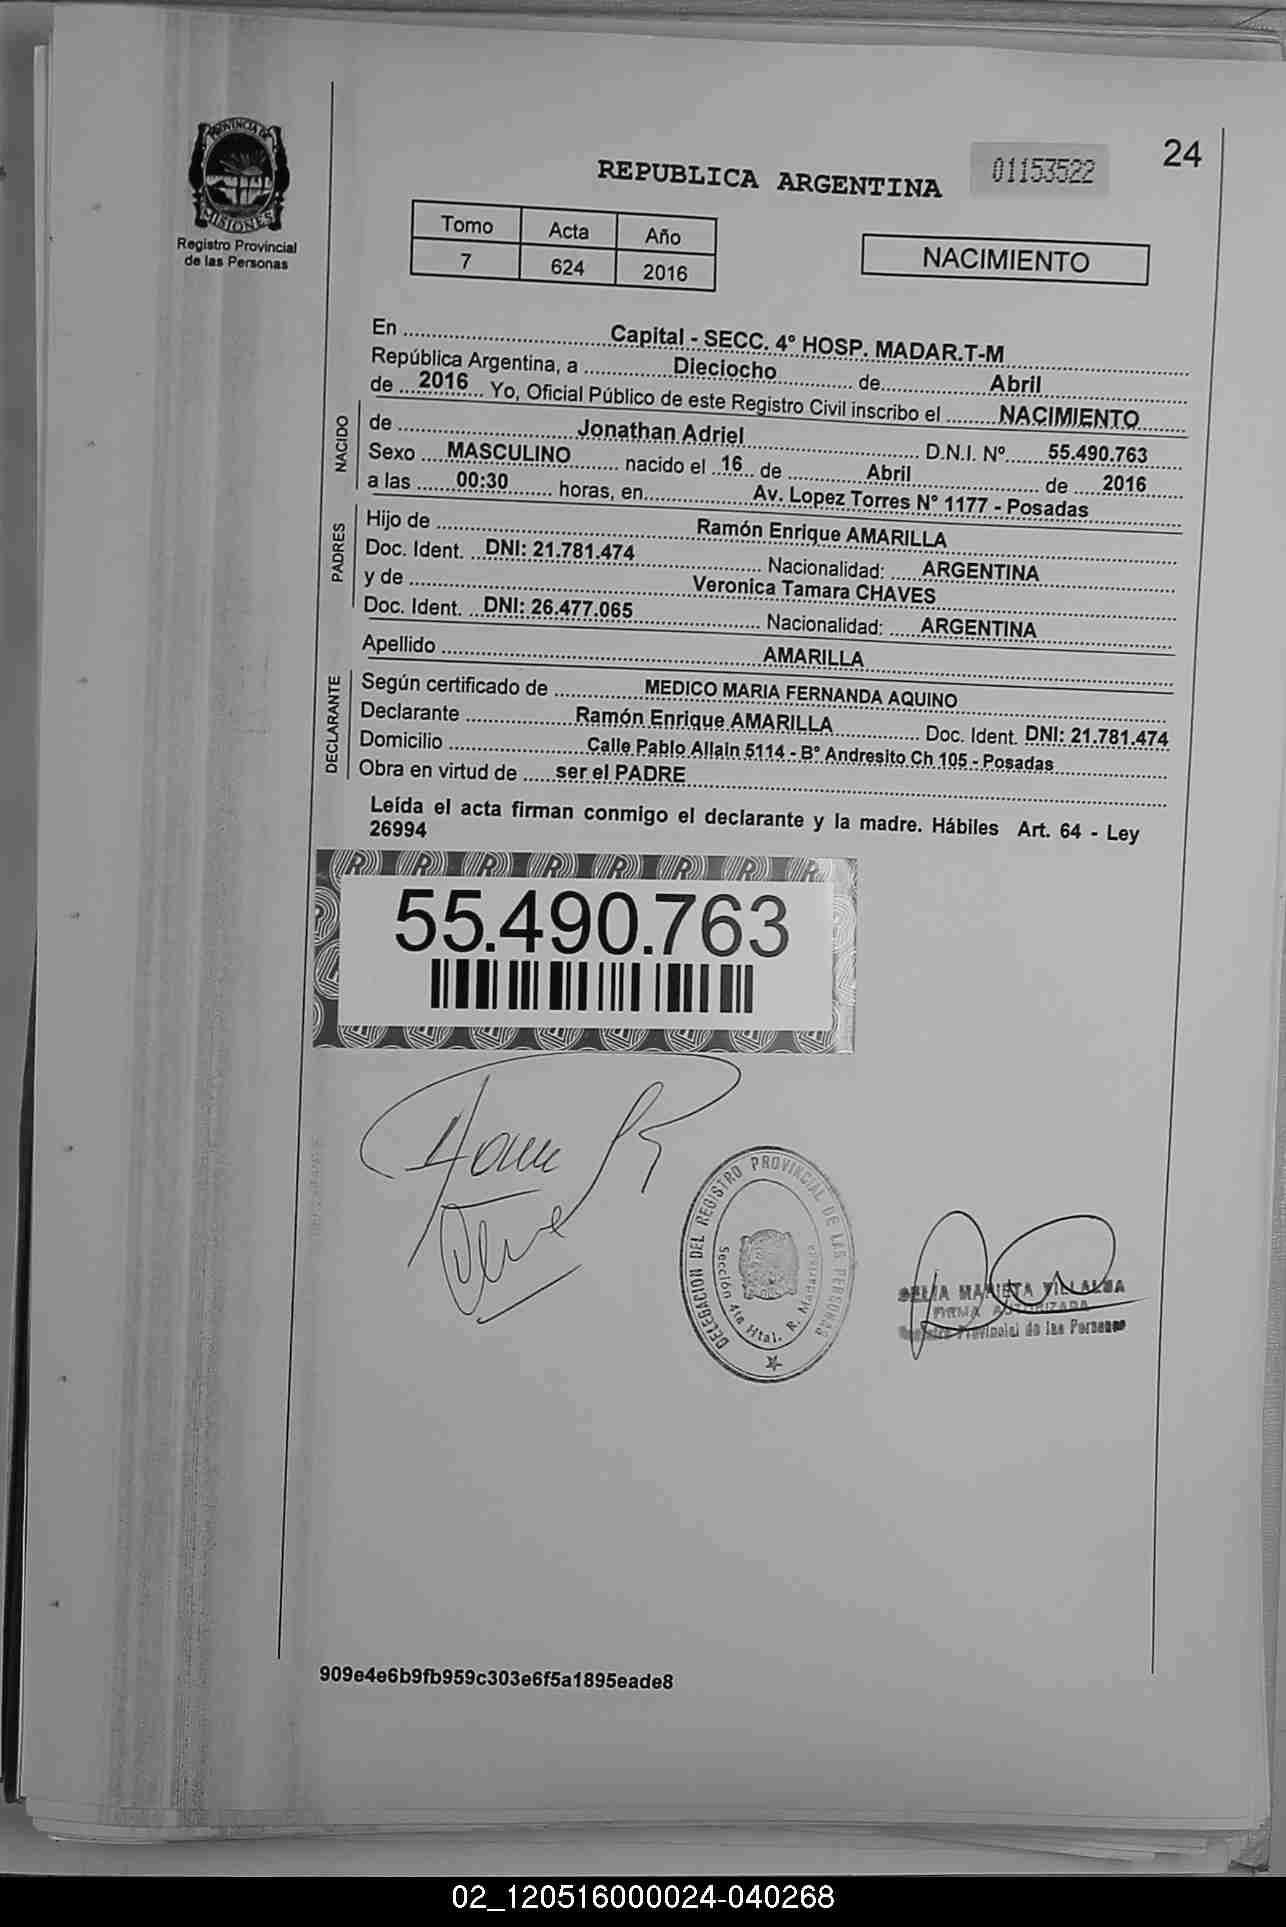 24
PROVINCIA DE
MISIONES
Registro Provincial
de las Personas
REPUBLICA ARGENTINA
01153522
Tomo Acta Año
7 624 2016
NACIMIENTO
En Capital - SECC. 4° HOSP. MADAR.T-M
República Argentina, a Dieciocho de Abril
de 2016 Yo, Oficial Público de este Registro Civil inscribo el NACIMIENTO
NACIDO
de Jonathan Adriel D.N.I. Nº 55.490.763
Sexo MASCULINO nacido el 16 de Abril de 2016
a las 00:30 horas, en Av. Lopez Torres N° 1177 - Posadas
PADRES
Hijo de Ramón Enrique AMARILLA
Doc. Ident. DNI: 21.781.474 Nacionalidad: ARGENTINA
y de Veronica Tamara CHAVES
Doc. Ident. DNI: 26.477.065 Nacionalidad: ARGENTINA
Apellido AMARILLA
DECLARANTE
Según certificado de MEDICO MARIA FERNANDA AQUINO
Declarante Ramón Enrique AMARILLA Doc. Ident. DNI: 21.781.474
Domicilio Calle Pablo Allain 5114 - B° Andresito Ch 105 - Posadas
Obra en virtud de ser el PADRE
Leída el acta firman conmigo el declarante y la madre. Hábiles Art. 64 - Ley
26994
55.490.763
DELEGACION DEL REGISTRO PROVINCIAL DE LAS PERSONAS
Sección 4ta Htal. R. Madariaga
VILLALBA
FIRMA AUTORIZADA
Registro Provincial de las Personas
909e4e6b9fb959c303e6f5a1895eade8
02_120516000024-040268